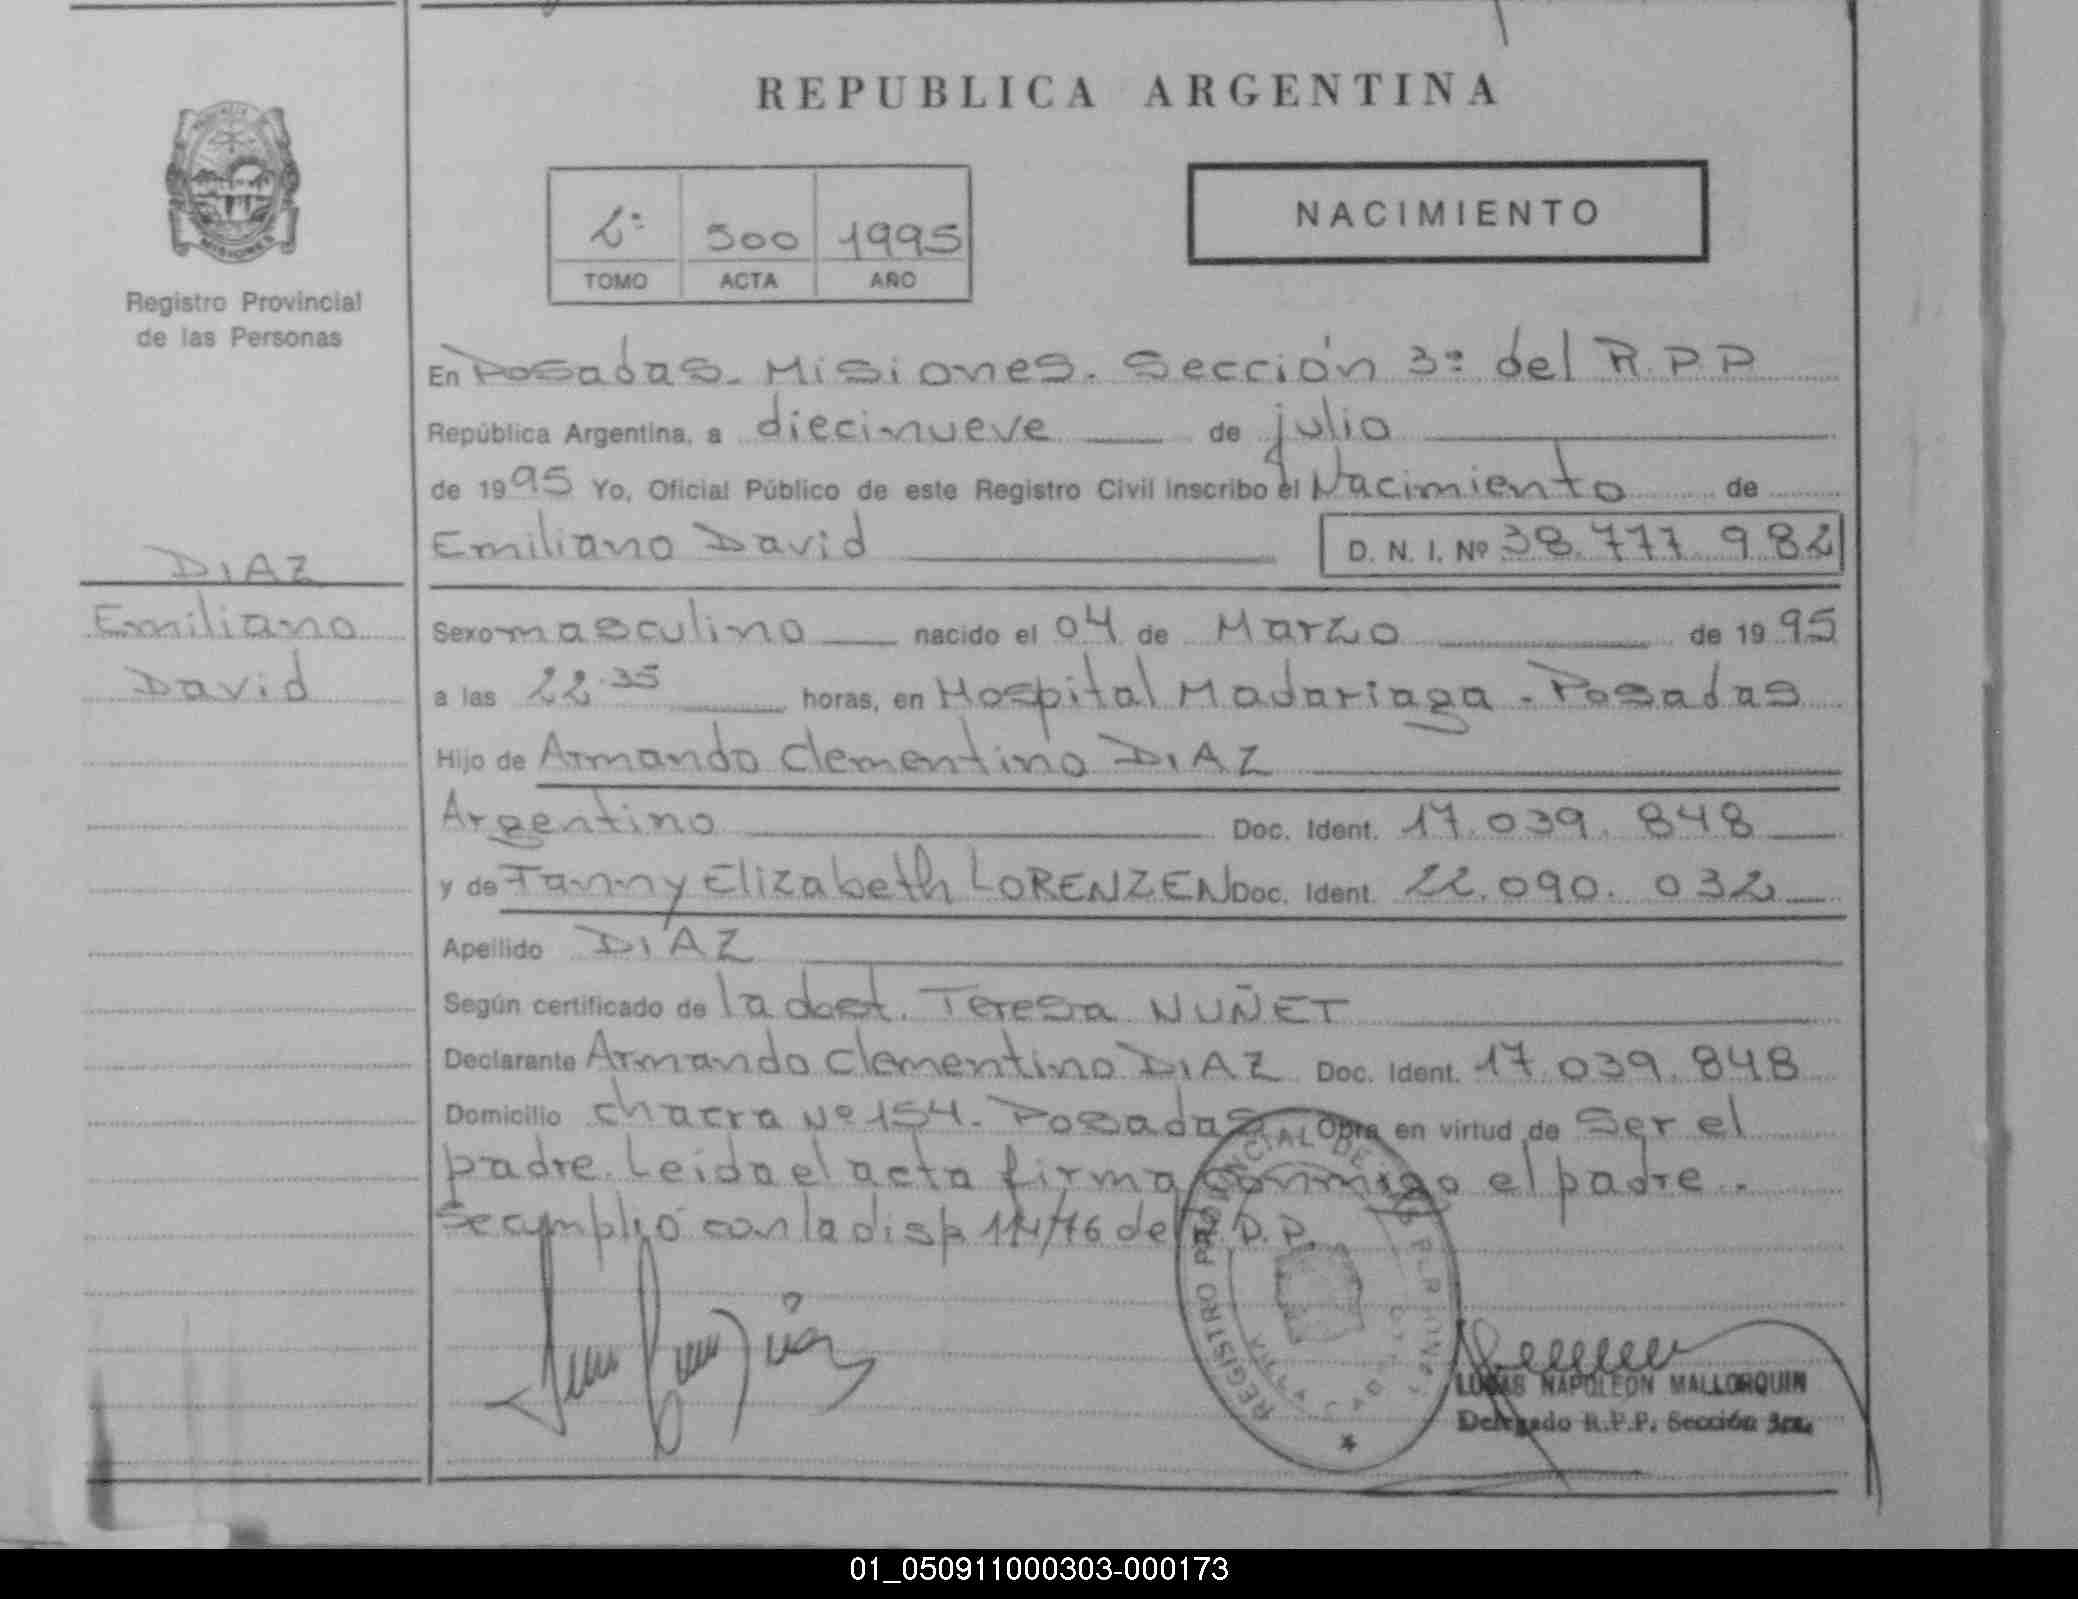 REPUBLICA ARGENTINA
Registro Provincial
de las Personas
2º 500 1995
TOMO ACTA AÑO
NACIMIENTO
En Posadas. Misiones. Sección 3ª del R.P.P
República Argentina, a diecinueve de julio
de 1995 Yo, Oficial Público de este Registro Civil inscribo el Nacimiento de
Emiliano David D. N. I. Nº 38.777.982
DIAZ
Emiliano
David
Sexo masculino nacido el 04 de Marzo de 1995
a las 22.35 horas, en Hospital Madariaga - Posadas
Hijo de Armando Clementino DIAZ
Argentino Doc. Ident. 17.039.848
y de Fanny Elizabeth LORENZEN Doc. Ident. 22.090.032
Apellido DIAZ
Según certificado de la dost. Teresa NUÑET
Declarante Armando Clementino DIAZ Doc. Ident. 17.039.848
Domicilio chacra Nº 154. Posadas Obra en virtud de Ser el
padre. Leida el acta firma conmigo el padre.
Se cumplió con la disp 114/76 del R.P.P.
REGISTRO PROVINCIAL DE LAS PERSONAS
LUCAS NAPOLEON MALLORQUIN
Delegado R.P.P. Sección 3ra.
01_050911000303-000173